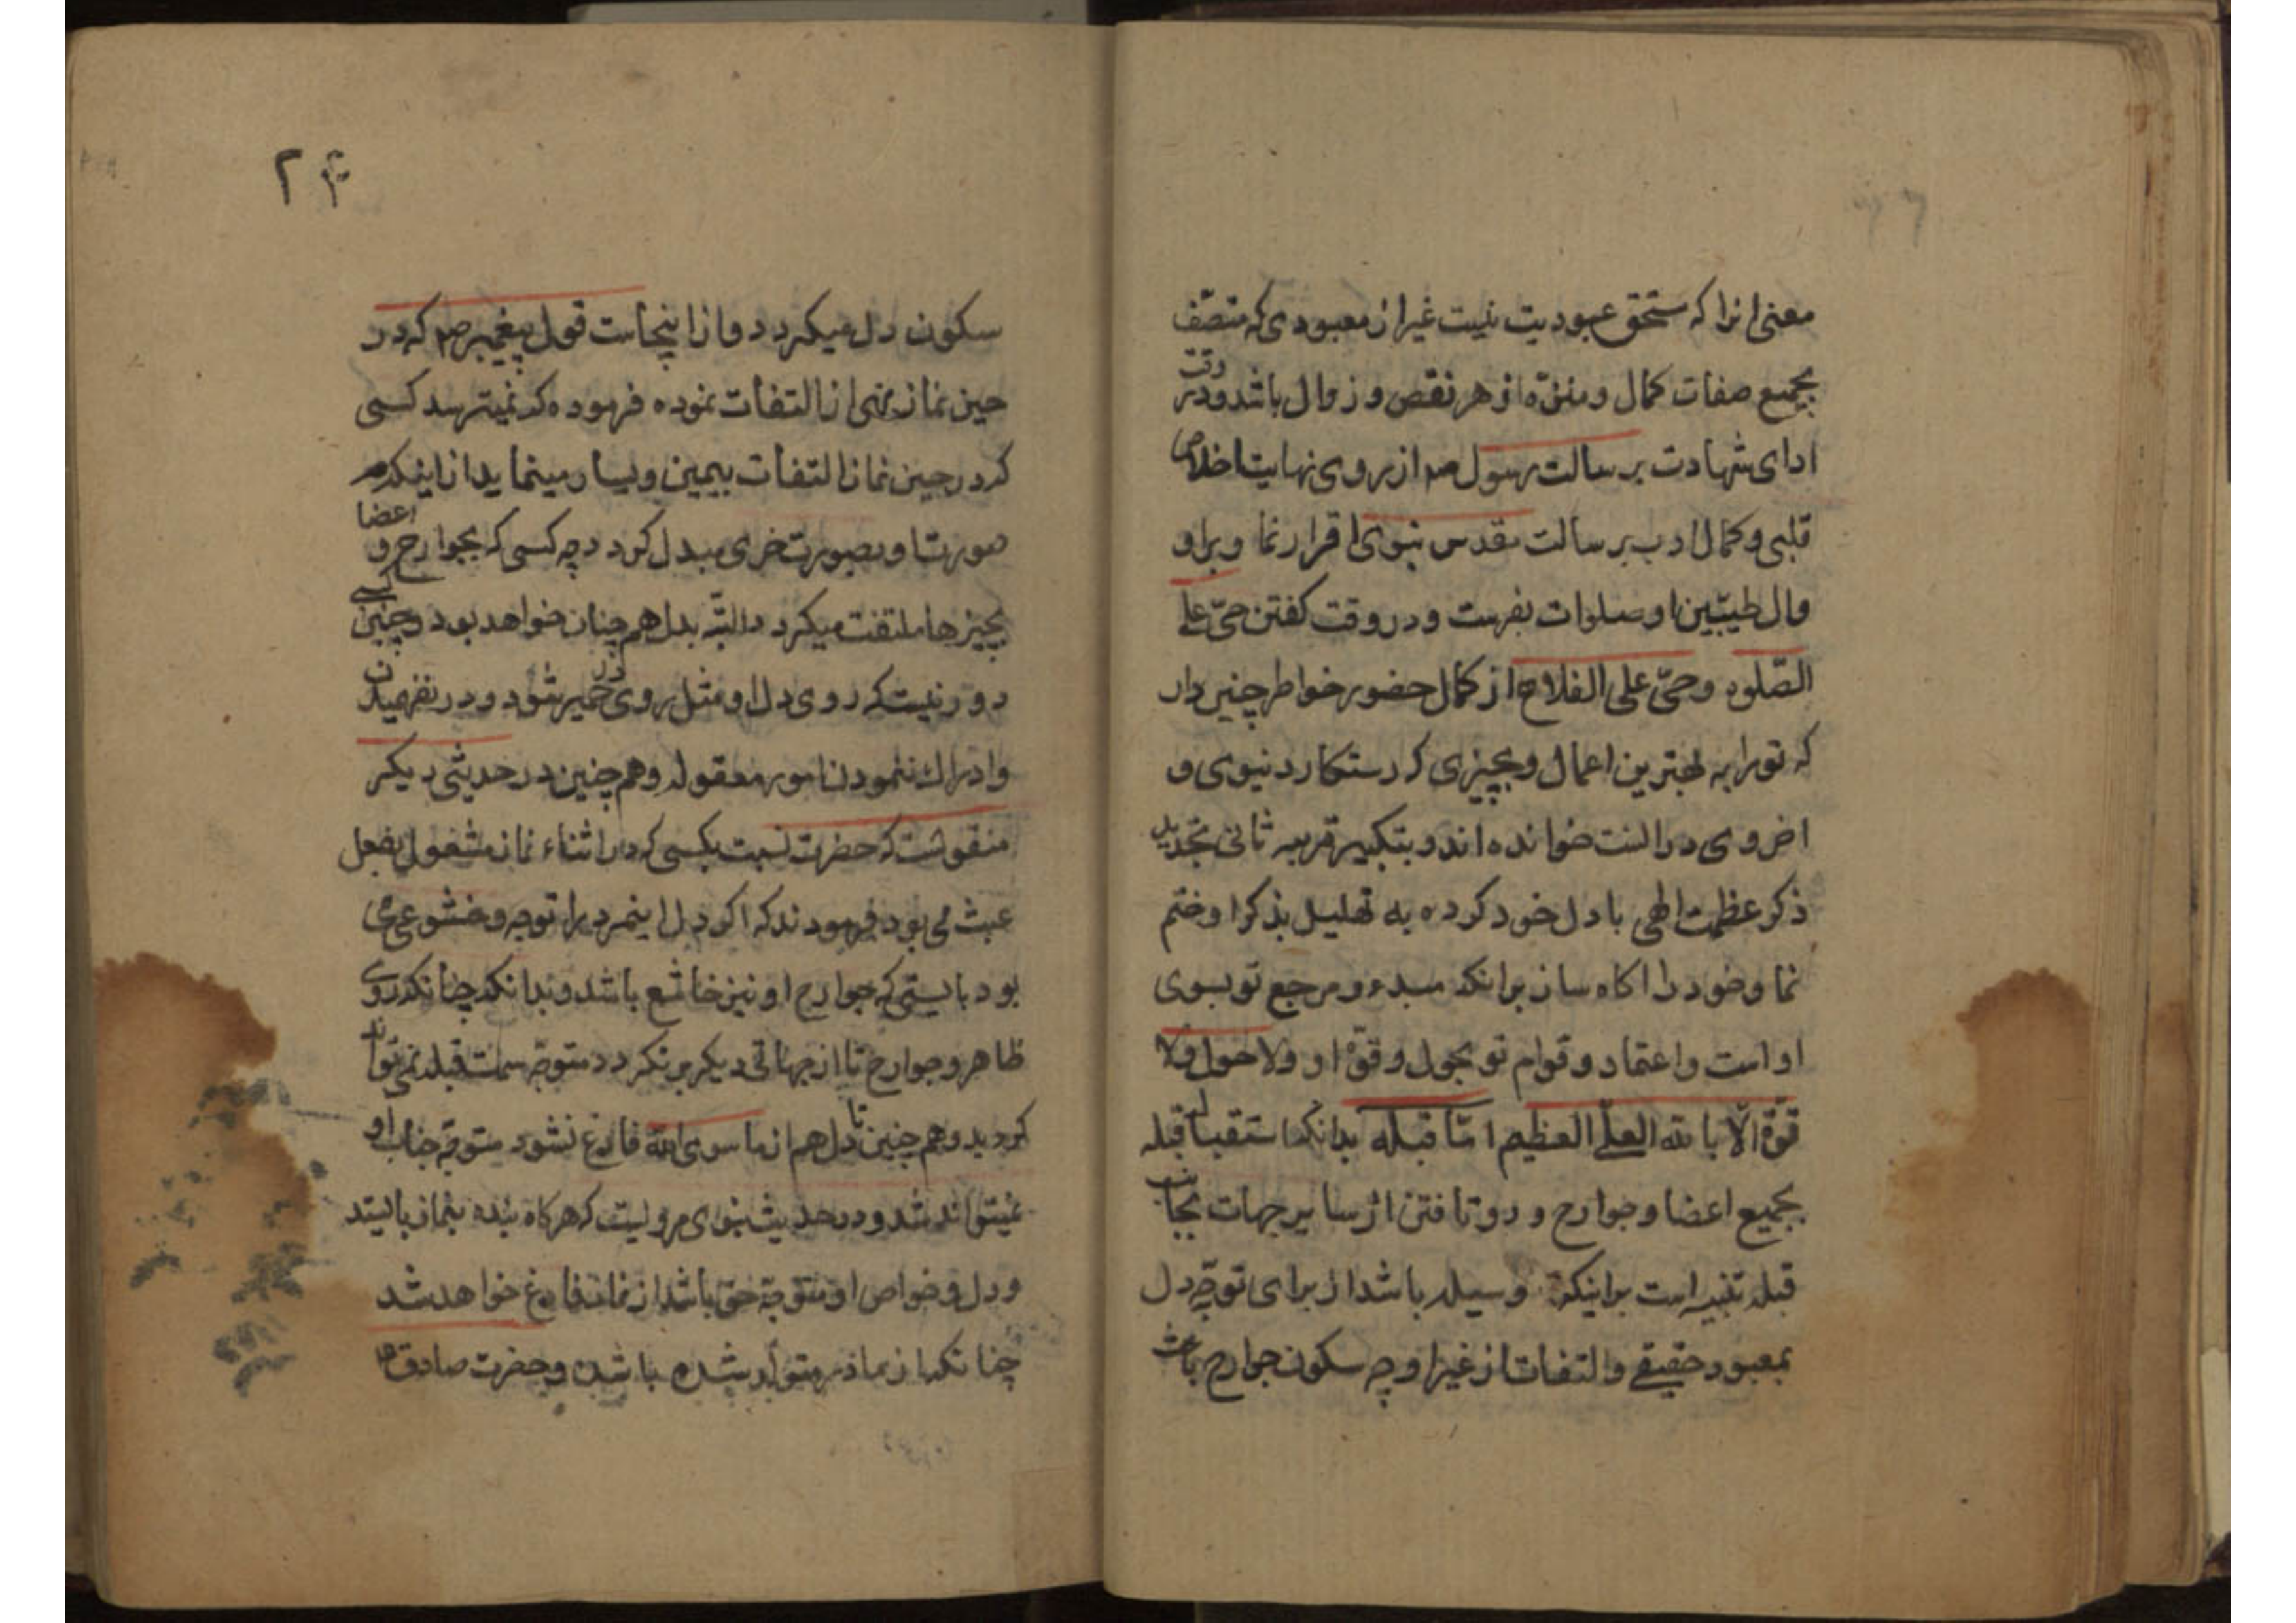 معنی انرا که مستحق عبودیت نیست غیر از معبودی که متصف
بجمیع صفات کمال و منزّه از هر نقص و زوال باشد و در وقت
ادای شهادت بر سالت رسول ص از روی نهایت اخلاص
قلبی و کمال ادب بر سالت مقدس نبوی اقرار نما و بر او
وال طیّبین او صلوات بفرست و در وقت کفتن حیّ علی
الصّلوه و حیّ علی الفلاح از کمال حضور خواطر چنین دان
که تو را به بهترین اعمال و بچیزی که رستکار دنیوی و
اخروی در النست خوانده اند و بتکبیر مرتبه ثانی تجدید
ذکر عظمت الهی با دل خود کرده به تهلیل بذکر او ختم
نما و خود را اکاه ساز بر انکه مبدء و مرجع تو بسوی
او است و اعتماد و قوام تو بحول و قوّة او و لا حول و لا
قوّة الّا بالله العلّی العظیم امّا قبله بدانکه استقبال قبله
بجمیع اعضا و جوارح و رو تافتن از سایر جهات بجانب
قبله تنبیه است بر اینکه وسیله باشد از برای توجّه دل
بمعبود حقیقی و التفات از غیر او چه سکون جوارح باعث
۲۴
سکون دل میکردد و از اینجاست قول پیغمبر ص که در
حین نماز نهی از التفات نموده فرموده که نمیترسد کسی
که در حین نماز التفات بیمین و یسار مینماید از اینکه
صورت او بصورت خری مبدل کردد چه کسی که بجوارح و اعضا
بچیزها ملتفت میکردد البتّه بدل هم چنان خواهد بود و چنین کسی
دور نیست که روی دل او مثل روی خر شود در نفهمیدن
و ادراک ننمودن امور معقوله و هم چنین در حدیثی دیکر
منقولست که حضرت نسبت بکسی که در اثناء نماز مشغول بفعل
عبث می بود فرمودند که اکر دل اینمرد را توجه و خشوعی می
بود بایستی که جوارح او نیز خاشع باشد و بدانکه چنانکه روی
ظاهر و جوارح تا از جهاتی دیکر بر نکردد متوجّه سمت قبله نمی تواند
کردید و هم چنین تا دل هم از ما سوی الله فارغ نشود متوجّه جناب او
نمیتواند شد و در حدیث نبوی مرویست که هر کاه بنده بنماز بایستد
و دل و خواص او متوجّه حق باشد از نماز فارغ خواهد شد
چنانکه از مادر متولّد شده باشد و حضرت صادق ع